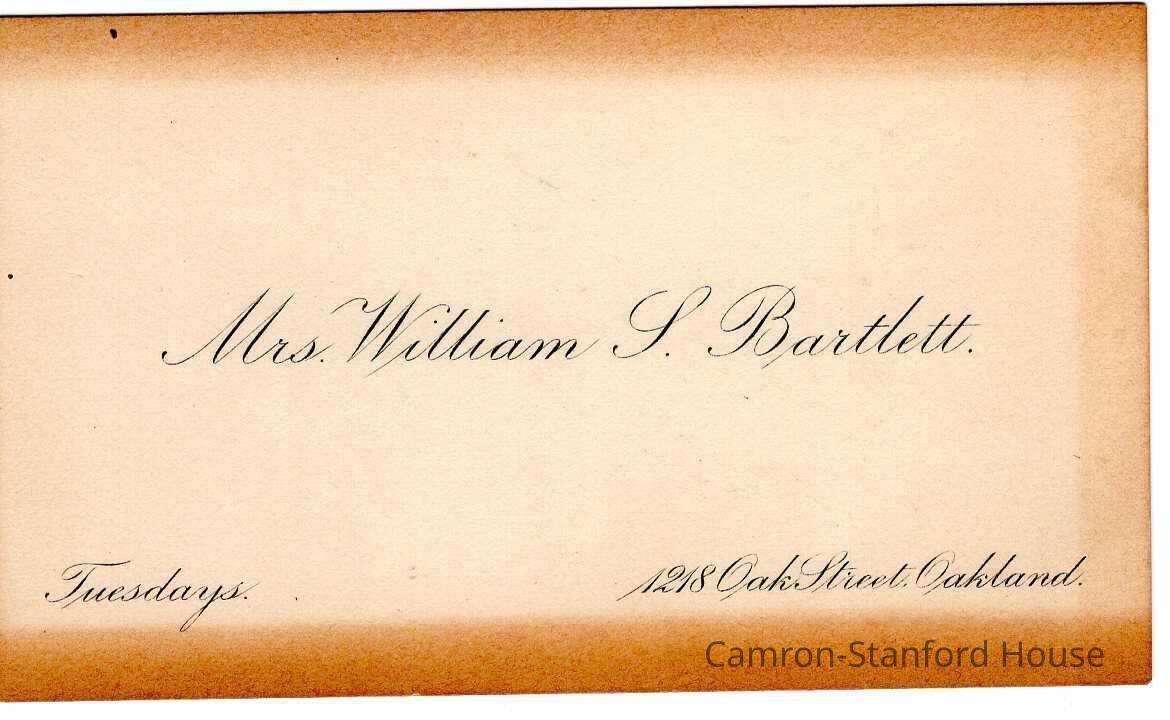 Mrs. William S. Bartlett.
Tuesdays.
1218 Oak Street. Oakland.
Camron-Stanford House